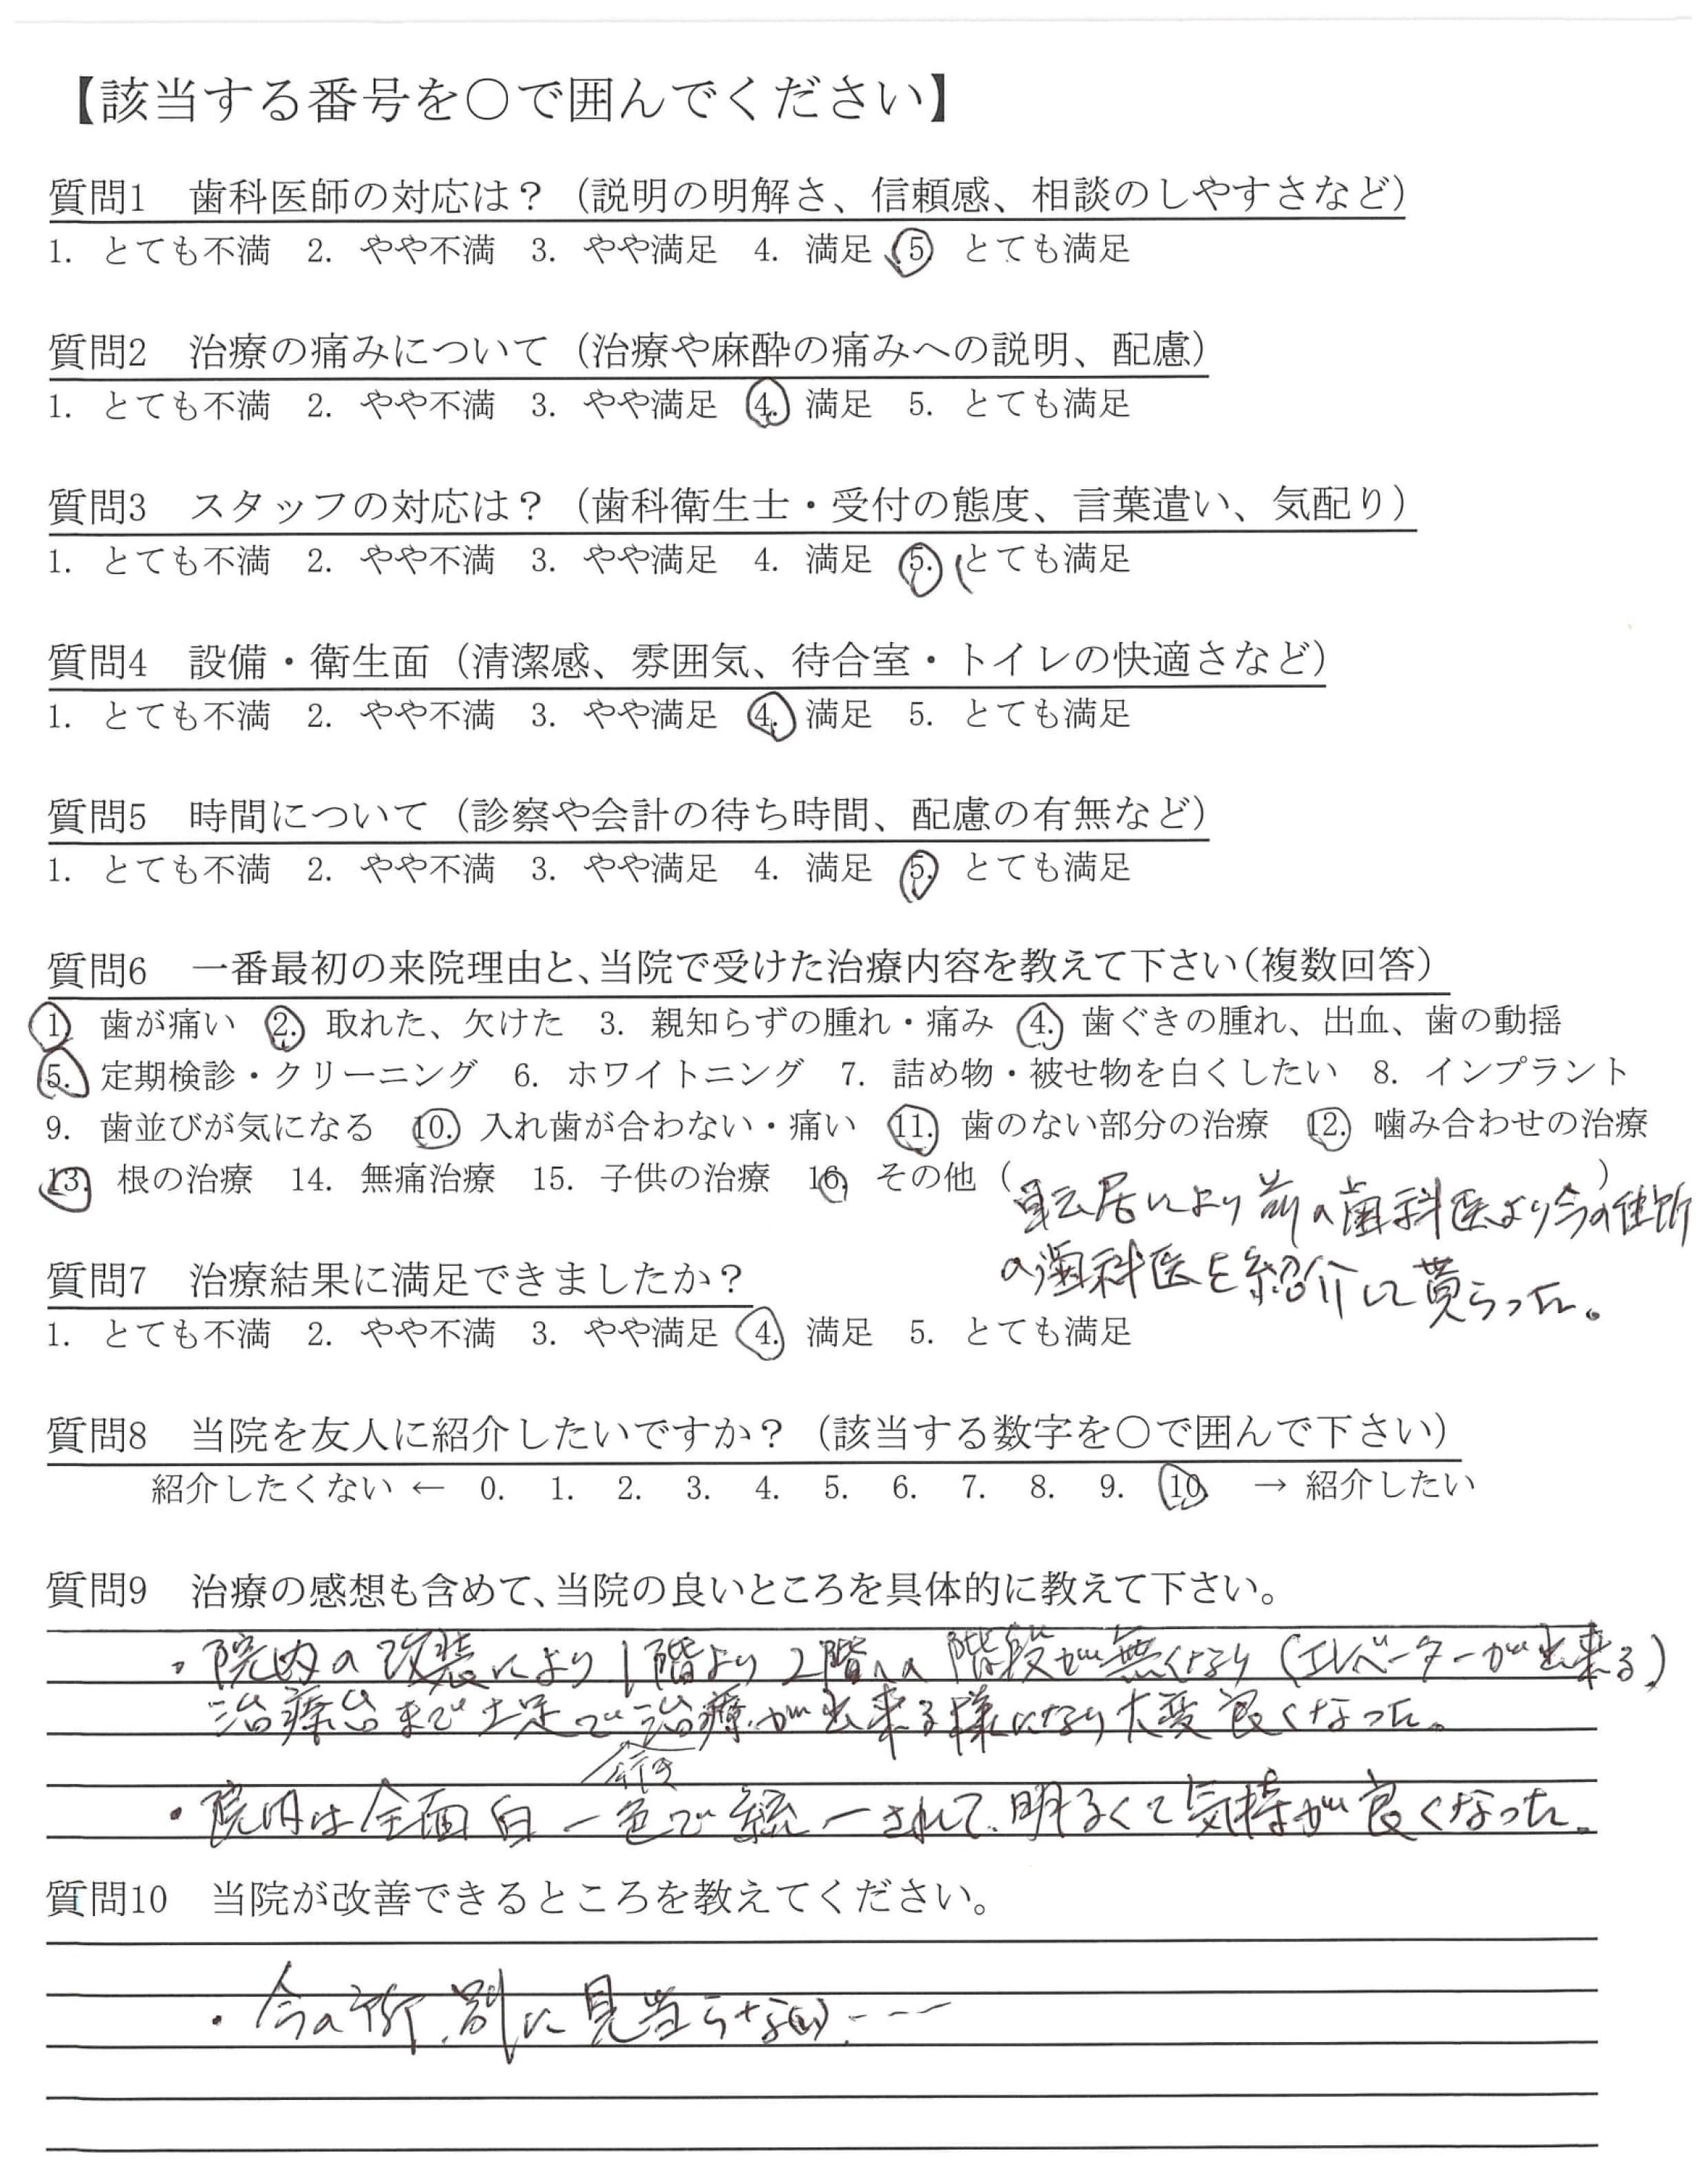 【該当する番号を〇で囲んでください】
質問1　歯科医師の対応は？（説明の明解さ、信頼感、相談のしやすさなど）
1. とても不満　2. やや不満　3. やや満足　4. 満足　5. とても満足
質問2　治療の痛みについて（治療や麻酔の痛みへの説明、配慮）
1. とても不満　2. やや不満　3. やや満足　4. 満足　5. とても満足
質問3　スタッフの対応は？（歯科衛生士・受付の態度、言葉遣い、気配り）
1. とても不満　2. やや不満　3. やや満足　4. 満足　5. とても満足
質問4　設備・衛生面（清潔感、雰囲気、待合室・トイレの快適さなど）
1. とても不満　2. やや不満　3. やや満足　4. 満足　5. とても満足
質問5　時間について（診察や会計の待ち時間、配慮の有無など）
1. とても不満　2. やや不満　3. やや満足　4. 満足　5. とても満足
質問6　一番最初の来院理由と、当院で受けた治療内容を教えて下さい（複数回答）
1 歯が痛い　2. 取れた、欠けた　3. 親知らずの腫れ・痛み　4. 歯ぐきの腫れ、出血、歯の動揺
5. 定期検診・クリーニング　6. ホワイトニング　7. 詰め物・被せ物を白くしたい　8. インプラント
9. 歯並びが気になる　10. 入れ歯が合わない・痛い　11. 歯のない部分の治療　12. 噛み合わせの治療
13. 根の治療　14. 無痛治療　15. 子供の治療　16. その他（　）
転居により前の歯科医より今の住所
の歯科医を紹介して貰らった。
質問7　治療結果に満足できましたか？
1. とても不満　2. やや不満　3. やや満足　4. 満足　5. とても満足
質問8　当院を友人に紹介したいですか？（該当する数字を〇で囲んで下さい）
紹介したくない ← 0. 1. 2. 3. 4. 5. 6. 7. 8. 9. 10. → 紹介したい
質問9　治療の感想も含めて、当院の良いところを具体的に教えて下さい。
・院内の改装により1階より2階への階段が無くなり（エレベーターが出来る）
治療台まで土足で治療が出来る様になり大変良くなった。
・院内は全面白一色で統一されて、明るくて気持が良くなった。
質問10　当院が改善できるところを教えてください。
・今の所、別に見当らない、---